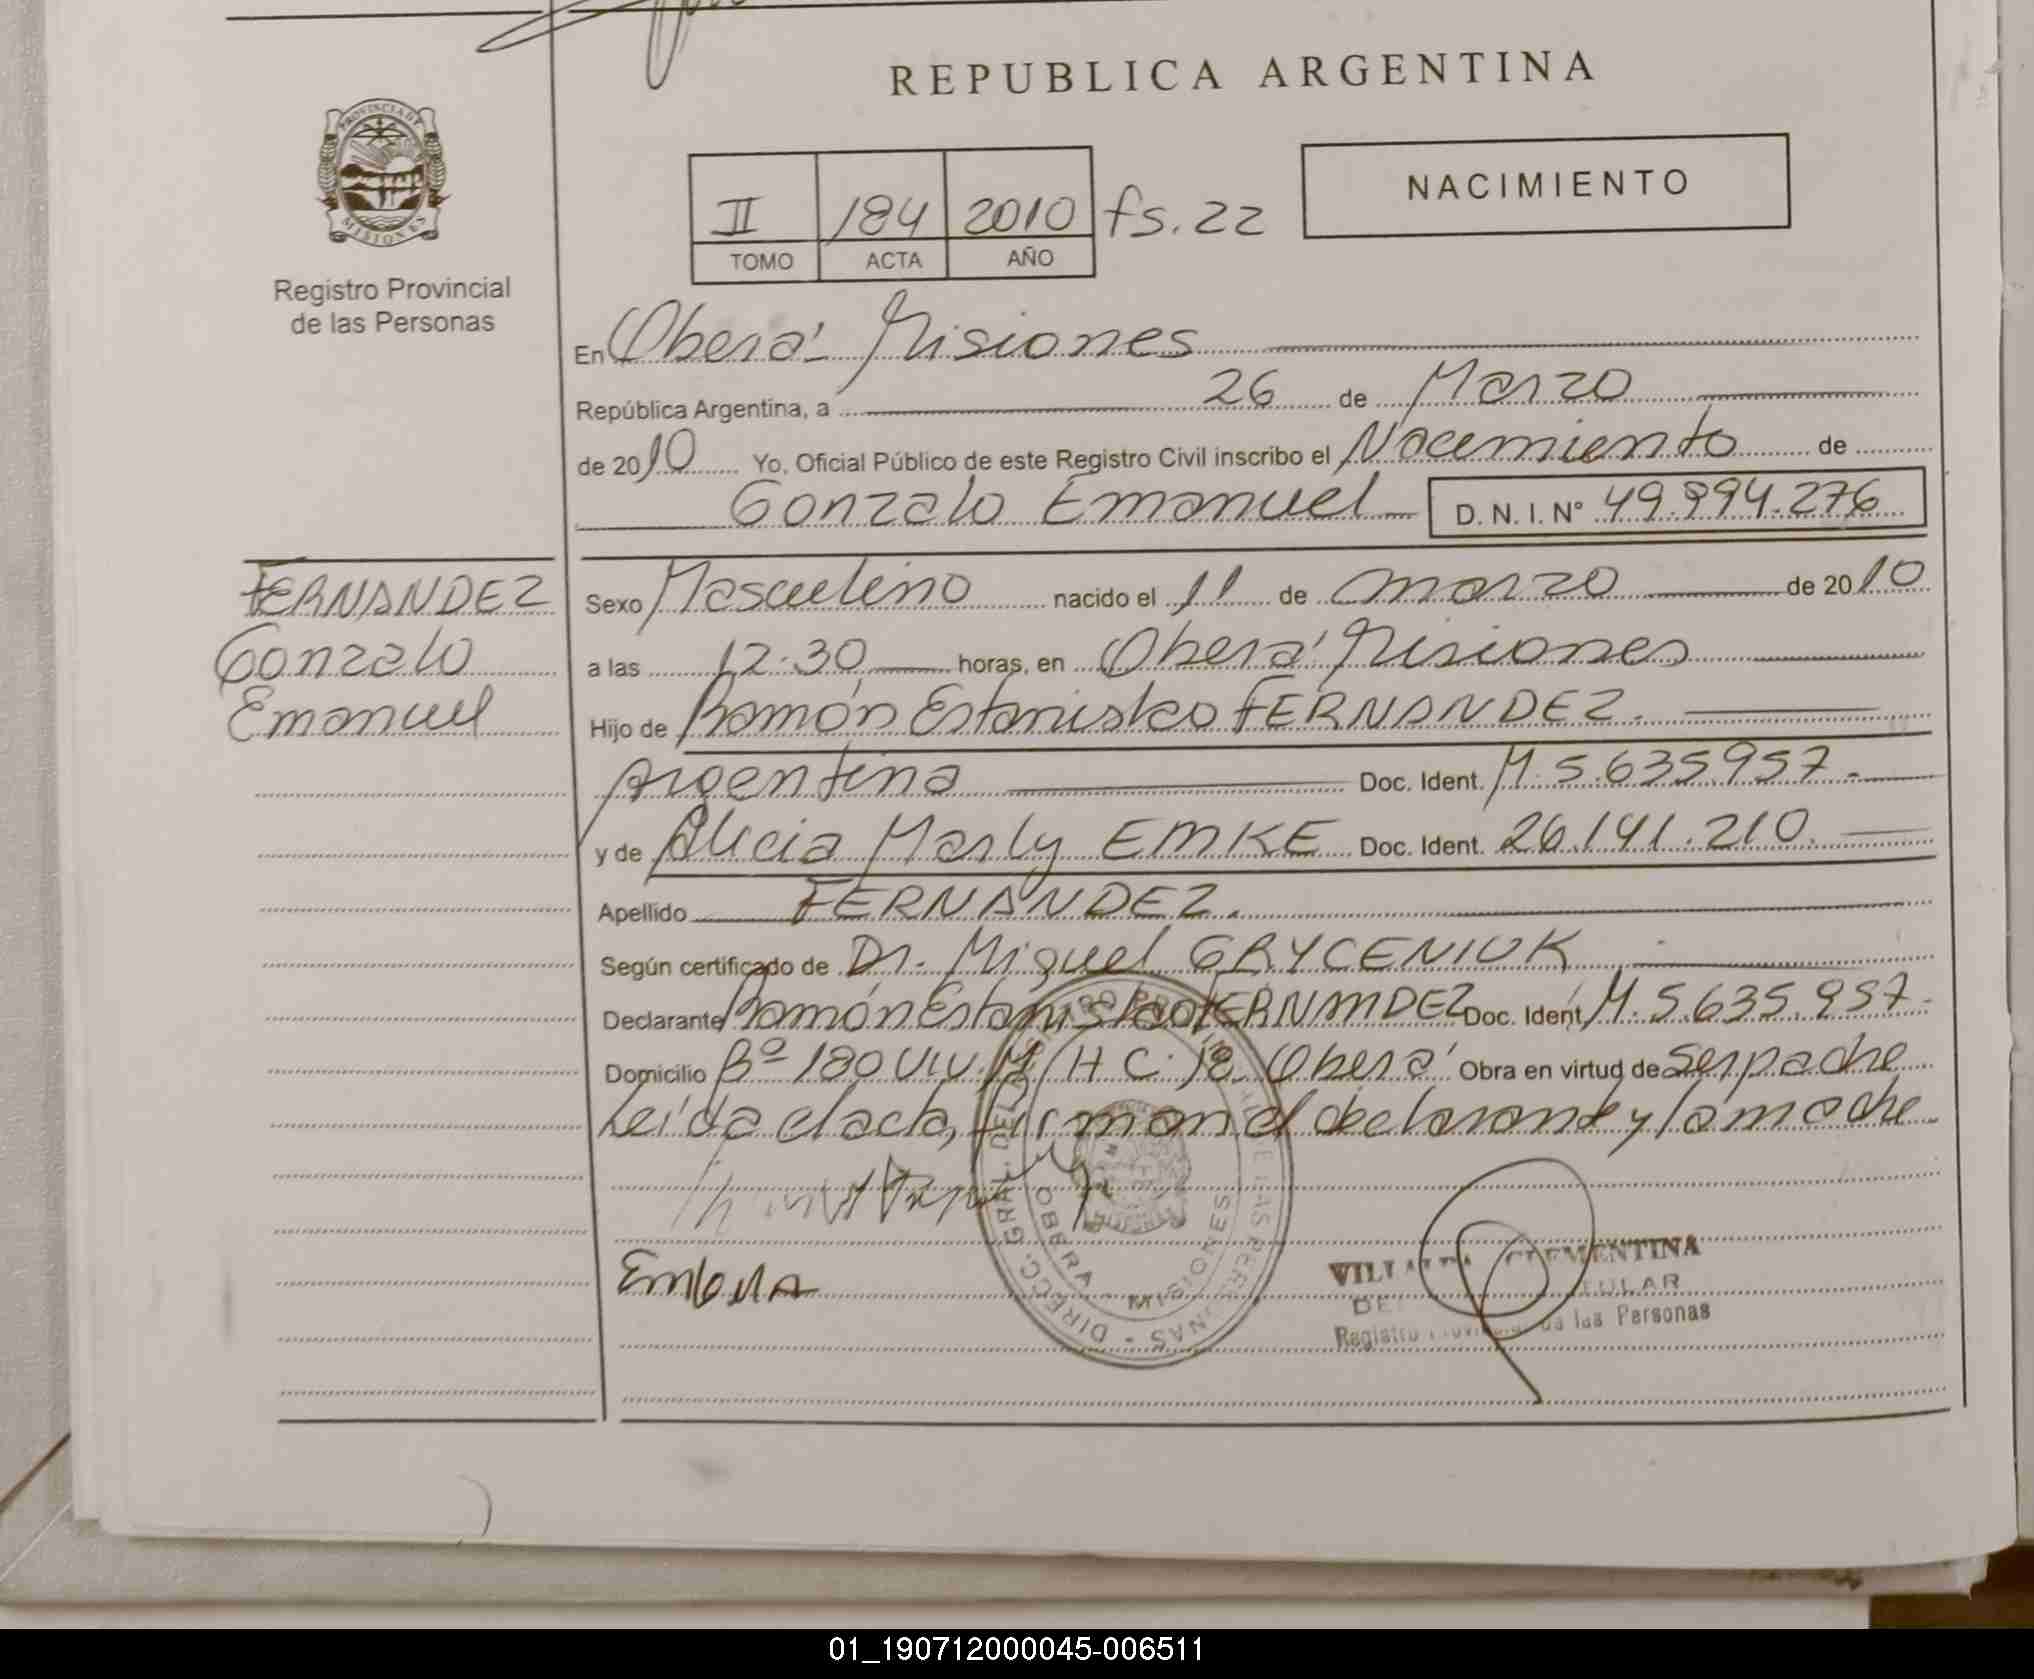 REPUBLICA ARGENTINA
PROVINCIA DE
MISIONES
Registro Provincial
de las Personas
NACIMIENTO
II 184 2010 fs. 22
TOMO ACTA AÑO
En Oberá Misiones
República Argentina, a 26 de Marzo
de 2010 Yo, Oficial Público de este Registro Civil inscribo el Nacimiento de
Gonzalo Emanuel D. N. I. N° 49.994.276
FERNANDEZ
Gonzalo
Emanuel
Sexo Masculino nacido el 11 de marzo de 2010
a las 12:30 horas, en Oberá Misiones
Hijo de Ramón Estanislao FERNANDEZ.
Argentina Doc. Ident. M 5.635957.
y de Alicia Marly EMKE Doc. Ident. 26.141.210.
Apellido FERNANDEZ.
Según certificado de Dr. Miguel GRYCENIUK
Declarante Ramón Estanislao FERNANDEZ Doc. Ident. M. 5.635.957.
Domicilio Bº 180 VIV. M/H C. 18 Oberá Obra en virtud de Ser padre
Leída el acta, firman el declarante y la madre
DIRECC. GRAL. DEL REGISTRO PROVINCIAL DE LAS PERSONAS
OBERA - MISIONES
CLEMENTINA
Registro de las Personas
01_190712000045-006511